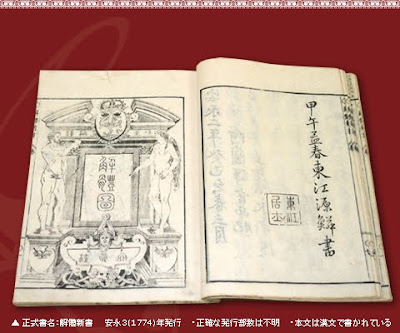 甲午孟春東江源鱗書
解體圖
▲ 正式書名:解體新書　安永3(1774)年発行　・正確な発行部数は不明　・本文は漢文で書かれている